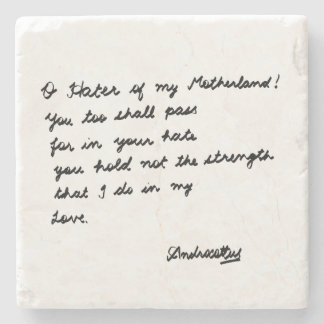 O Hater of my Motherland!
You too shall pass
for in your hate
you hold not the strength
that I do in my
Love.
Androcottus